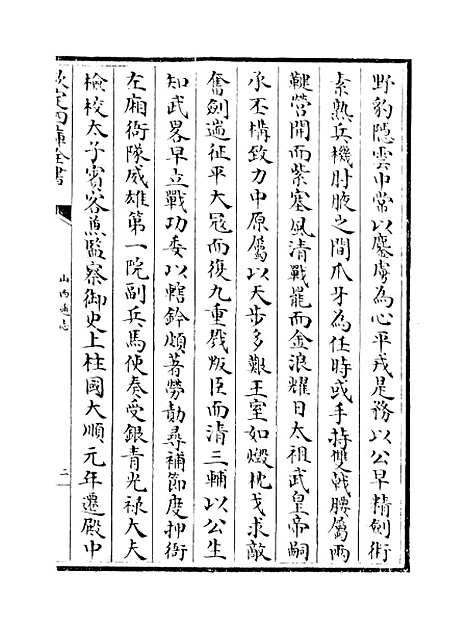 野豹隠雲中常以鏖虜為心平戎是務以公早精劍術
素熟兵機肘腋之間爪牙為任時或手持雙戟腰屬兩
鞬營開而紫塞風清戰罷而金浪耀日太祖武皇帝嗣
承丕構致力中原屬以天步多艱王室如燬枕戈求敵
奮劍遄征平大冦而復九重戮叛臣而清三輔以公生
知武畧早立戰功委以轄鈐頗著勞勣尋補節度押衙
左廂衙隊威雄第一院副兵馬使奏受銀青光禄大夫
檢校太子賓客兼監察御史上柱國大順元年遷殿中
欽定四庫全書
山西通志
二